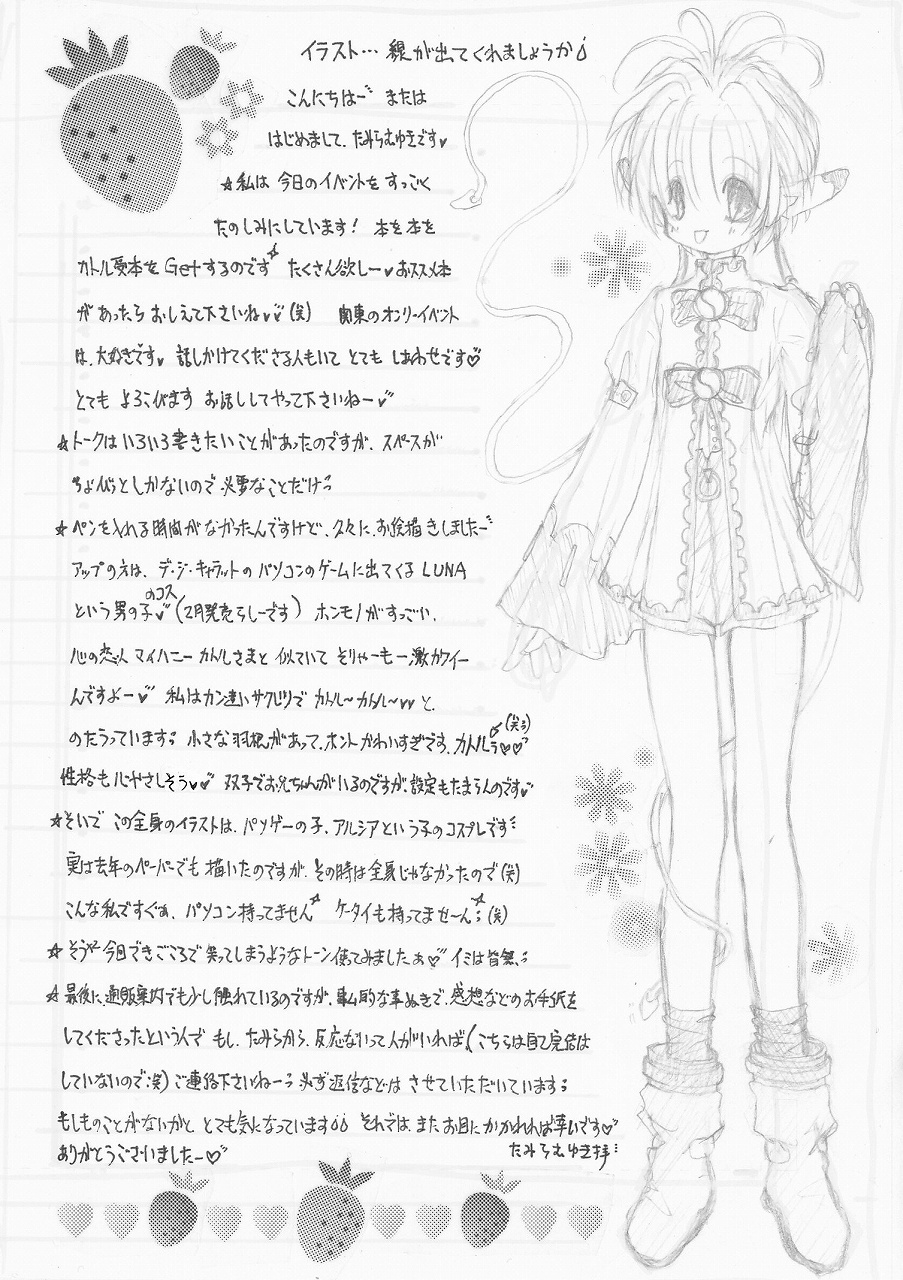 イラスト… 線が出てくれましょうか
こんにちはー または
はじめまして、たみらむゆきです♥
☆私は 今日のイベントを すっごく
たのしみにしています! 本を本を
カトル受本を Getするのです☆ たくさん欲しー♥おススメ本
があったら おしえて下さいね♥♥(笑) 関東のオンリーイベント
は、大好きです♥ 話しかけてくださる人もいて とても しあわせです♡
とても よろこびます お話ししてやって下さいねー♥
☆トークは いろいろ書きたいことがあったのですが、スペースが
ちょびっとしかないので 必要なことだけ
☆ペンを入れる時間がなかったんですけど、久々に、お絵描きしましたー
アップの方は、デ・ジ・キャラットの パソコンのゲームに出てくる LUNA
という男の子のコス♥(2月発売らしーです) ホンモノがすっごい、
心の恋人 マイハニー カトルさまと 似ていて そりゃーもー激カワイー
んですよー♥ 私はカン違いサクレツで カトル〜カトル〜♥♥ と、
のたうっています 小さな羽根があって、ホントかわいすぎです、カトルっ♡♡(笑)
性格も 心やさしそう♥♥ 双子でお兄ちゃんがいるのですが、設定もたまらんのです♥
☆そいで この全身のイラストは、パソゲーの子、アルシアという子のコスプレです
実は去年のペーパーでも 描いたのですが、その時は全身じゃなかったので(笑)
こんな私ですが、パソコン持ってません☆ ケータイも持ってませーん(笑)
☆そうや 今日できごころで 笑ってしまうようなトーン使ってみましたぁ♡ イミは皆無、
☆最後に、通販案内でも少し触れているのですが、事務的な事ぬきで、感想などのお手紙を
してくださったという人で もし、たみらから、反応ないって人がいれば、(こちらは自己完結は
していないので(笑) ご連絡下さいねーっ 必ず返信などは させていただいています
もしものことがないかと、とても気になっています それでは、またお目にかかれれば幸いです♡
ありがとうございましたー♡
たみらむゆき拝